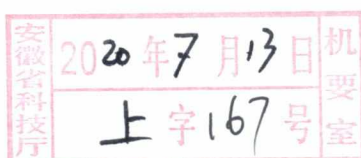 安徽省科技厅
2020年7月13日
上字167号
机要室